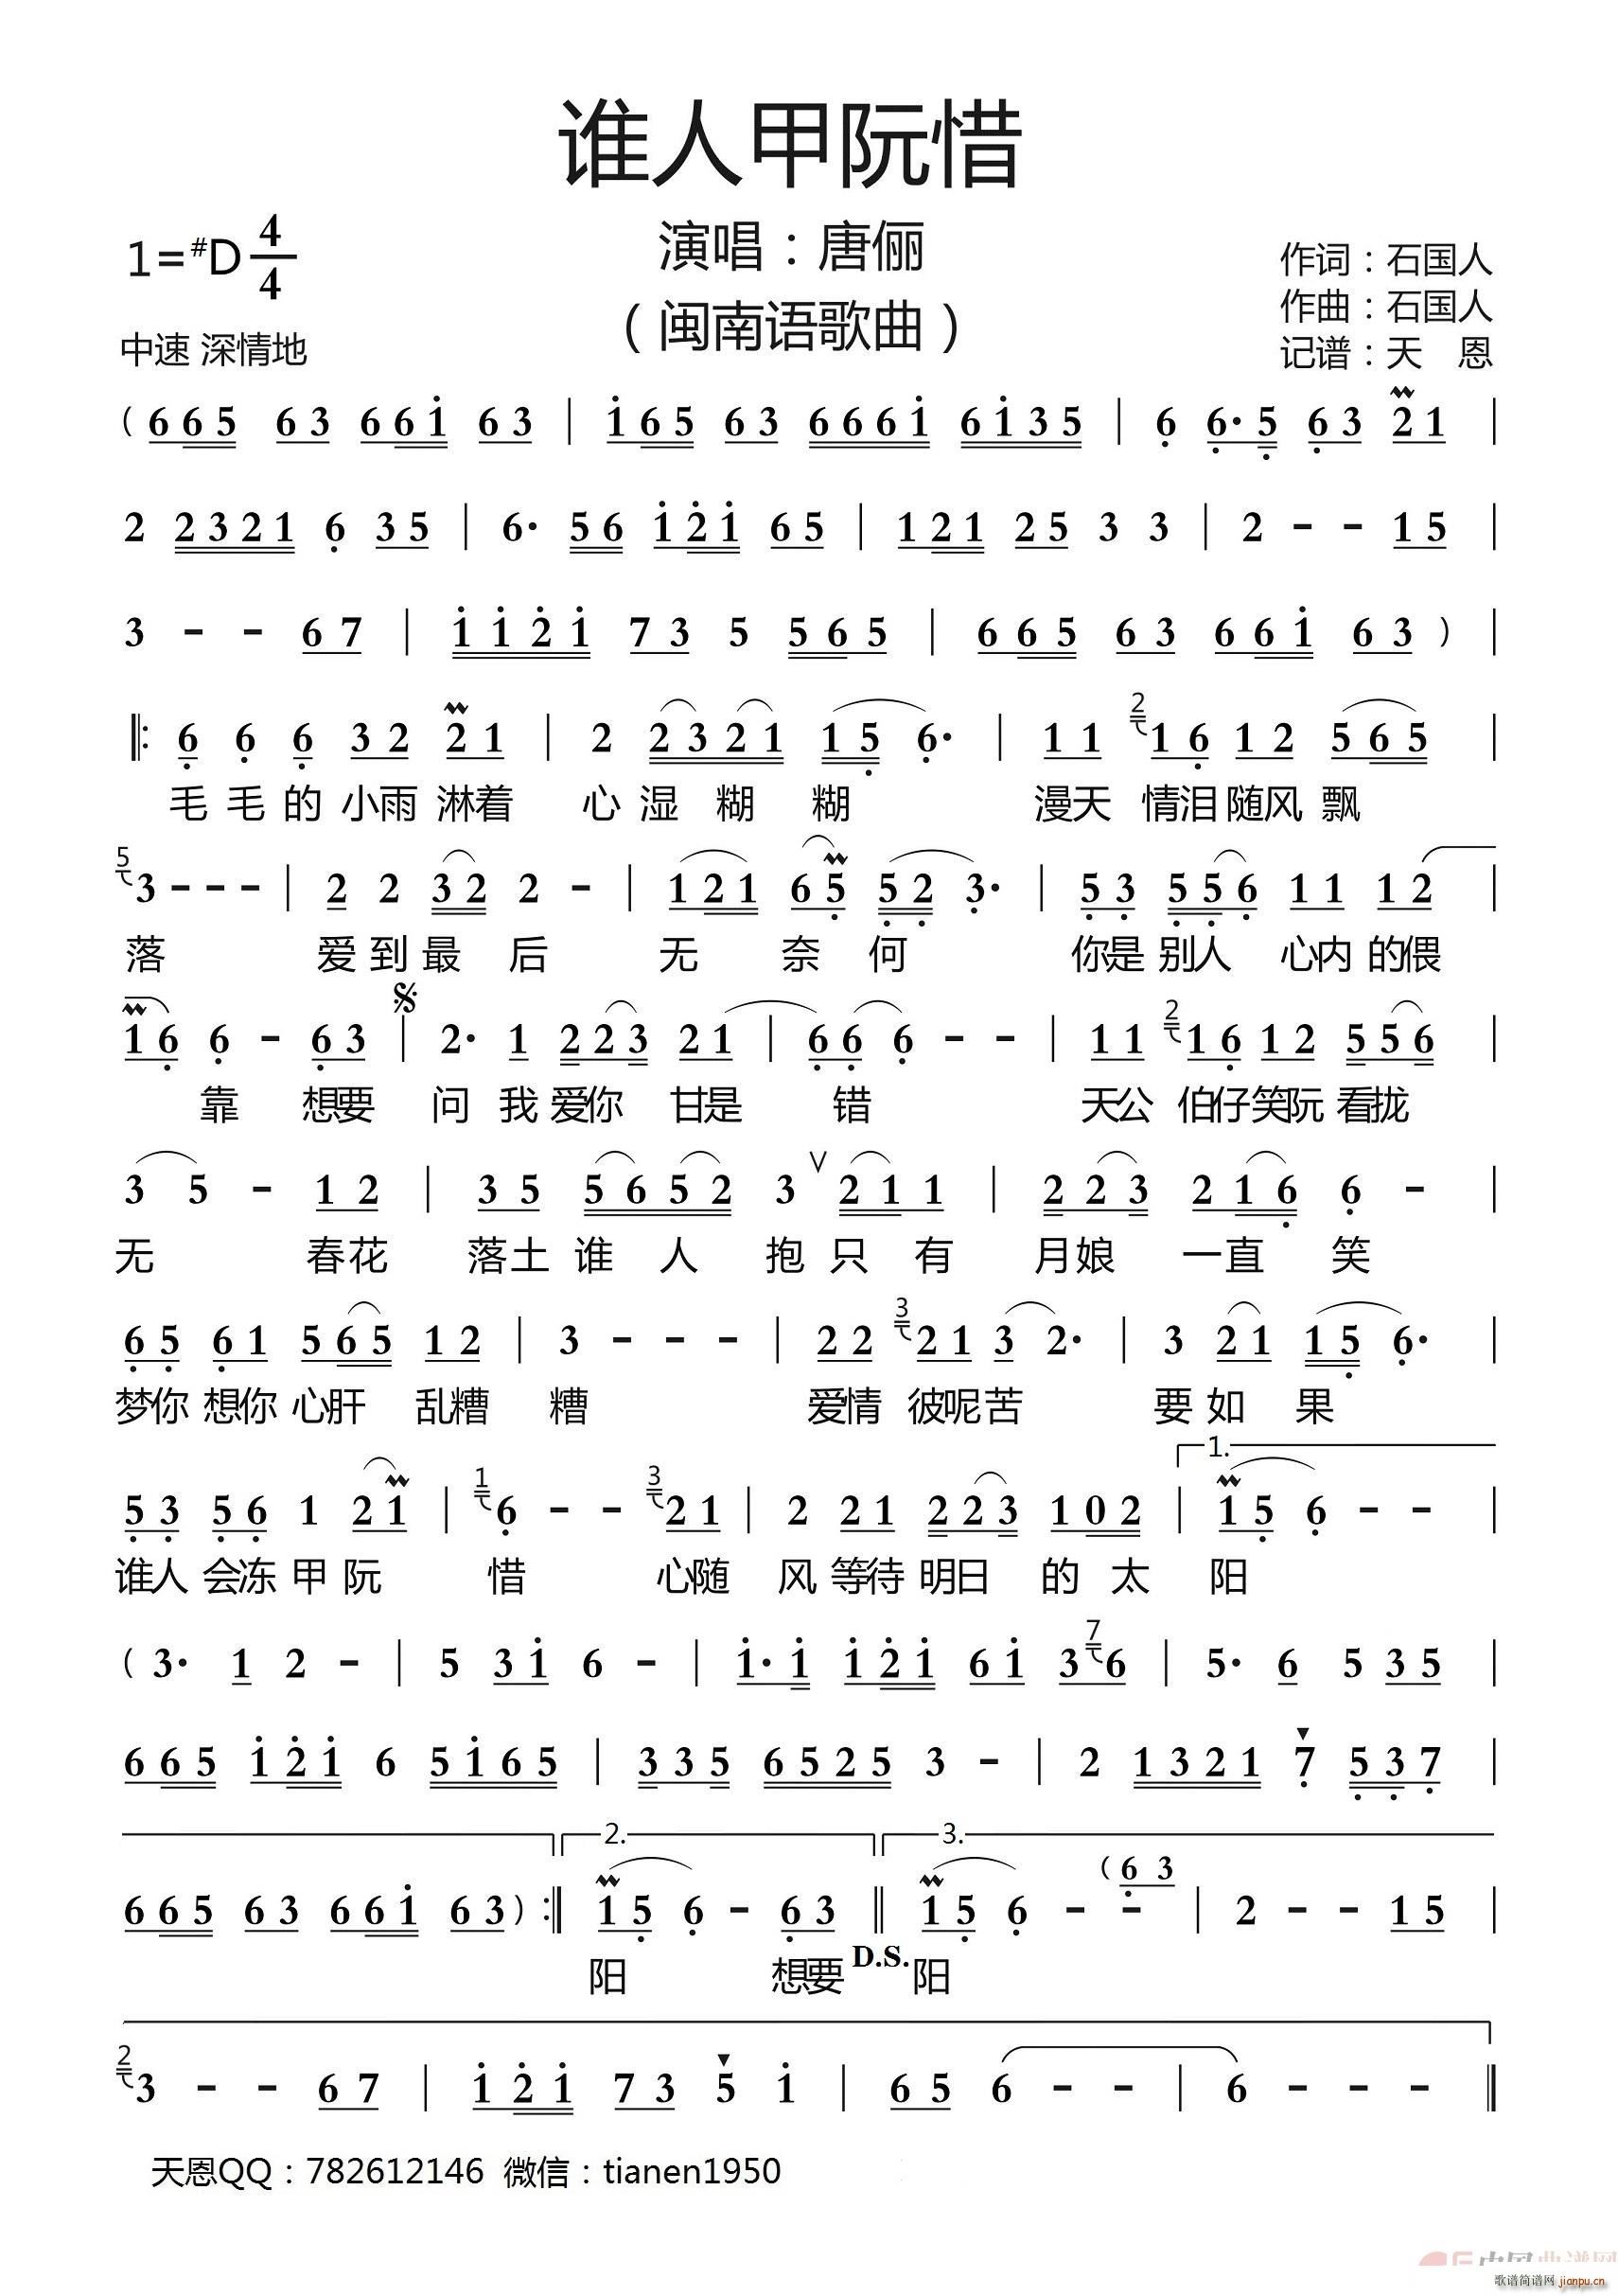 谁人甲阮惜
演唱：唐俪
（闽南语歌曲）
1=#D 4/4
中速 深情地
作词：石国人
作曲：石国人
记谱：天 恩
( 6 6 5 6 3 6 6 1 6 3 | 1 6 5 6 3 6 6 6 1 6 1 3 5 | 6 6· 5 6 3 2 1 |
2 2 3 2 1 6 3 5 | 6· 5 6 1 2 1 6 5 | 1 2 1 2 5 3 3 | 2 - - 1 5 |
3 - - 6 7 | 1 1 2 1 7 3 5 5 6 5 | 6 6 5 6 3 6 6 1 6 3 ) |
‖: 6 6 6 3 2 2 1 | 2 2 3 2 1 1 5 6· | 1 1 2 1 6 1 2 5 6 5 |
毛 毛 的 小雨 淋着 心 湿 糊 糊 漫天 情泪 随风 飘
5 3 - - - | 2 2 3 2 2 - | 1 2 1 6 5 5 2 3· | 5 3 5 5 6 1 1 1 2 |
落 爱 到 最 后 无 奈 何 你是 别人 心内 的偎
1 6 6 - 6 3 | 2· 1 2 2 3 2 1 | 6 6 6 - - | 1 1 2 1 6 1 2 5 5 6 |
靠 想要 问 我 爱你 甘是 错 天公 伯仔 笑阮 看拢
3 5 - 1 2 | 3 5 5 6 5 2 3 ∨ 2 1 1 | 2 2 3 2 1 6 6 - |
无 春花 落土 谁 人 抱 只 有 月娘 一直 笑
6 5 6 1 5 6 5 1 2 | 3 - - - | 2 2 3 2 1 3 2· | 3 2 1 1 5 6· |
梦你 想你 心肝 乱糟 糟 爱情 彼呢 苦 要 如 果
1.
5 3 5 6 1 2 1 | 1 6 - - 3 2 1 | 2 2 1 2 2 3 1 0 2 | 1 5 6 - - |
谁人 会冻 甲 阮 惜 心随 风 等待 明日 的 太 阳
( 3· 1 2 - | 5 3 1 6 - | 1· 1 1 2 1 6 1 3 7 6 | 5· 6 5 3 5 |
6 6 5 1 2 1 6 5 1 6 5 | 3 3 5 6 5 2 5 3 - | 2 1 3 2 1 7 5 3 7 |
2. 3.
6 6 5 6 3 6 6 1 6 3 ) :‖ 1 5 6 - 6 3 ‖ 1 5 6 - - ( 6 3 | 2 - - 1 5 |
阳 想要 D.S. 阳
2 3 - - 6 7 | 1 2 1 7 3 5 1 | 6 5 6 - - | 6 - - - ‖
天恩QQ：782612146 微信：tianen1950
歌谱简谱网 jianpu.cn